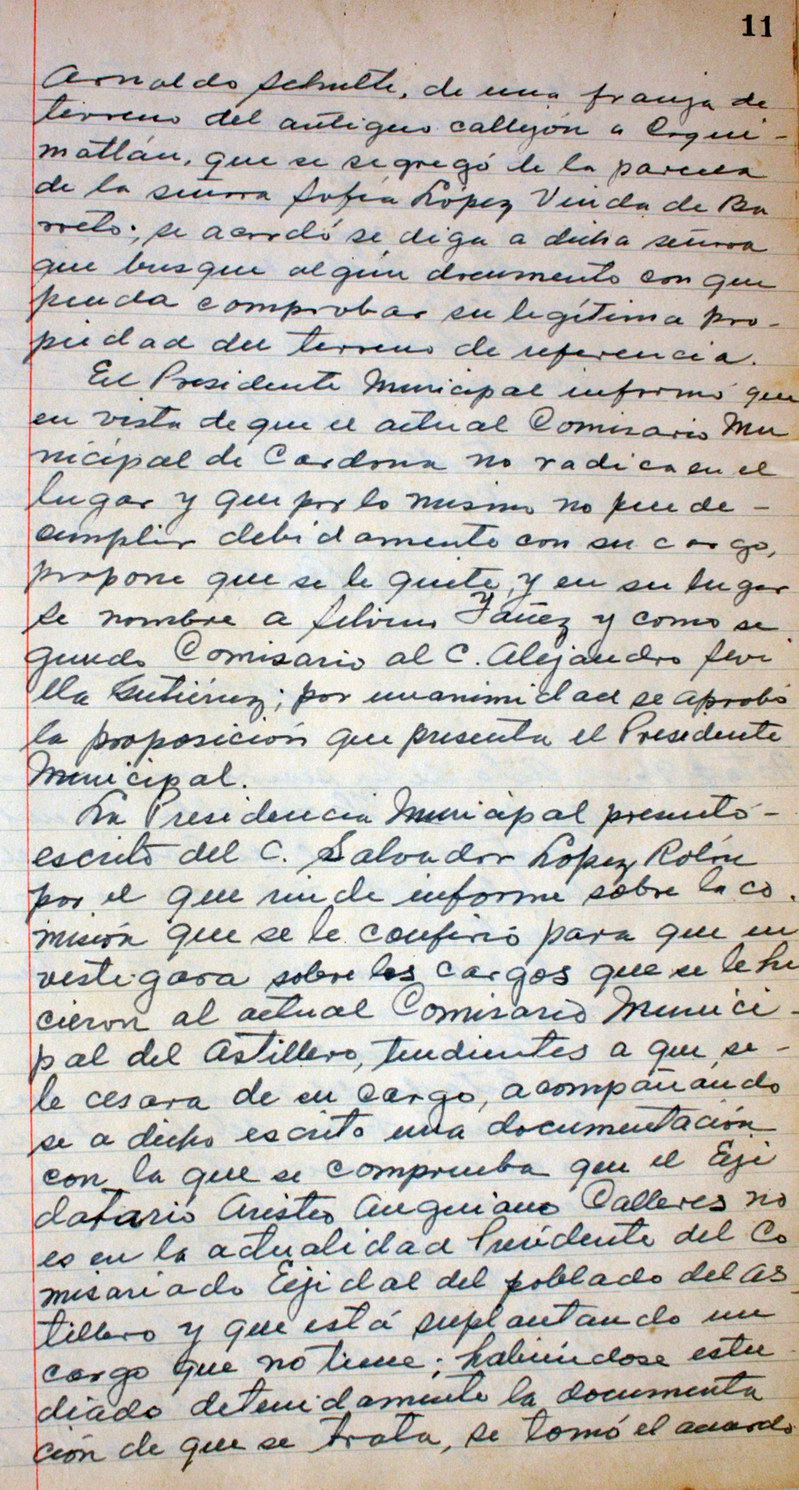 11
Arnoldo Schulte, de una franja de
terreno del antiguo callejón a Coqui-
matlán, que se segregó de la parcela
de la señora Sofía López Viuda de Ba
rreto; se acordó se diga a dicha señora
que busque algún documento con que
pueda comprobar su legítima pro-
piedad del terreno de referencia.
El Presidente Municipal informó que
en vista de que el actual Comisario Mu
nicipal de Cardona no radica en el
lugar y que por lo mismo no puede-
cumplir debidamente con su cargo,
propone que se le quite, y en su lugar
se nombre a Silvino Yáñez y como se
gundo Comisario al C. Alejandro Sevi
lla Gutiérrez; por unanimidad se aprobó
la proposición que presenta el Presidente
Municipal.
La Presidencia Municipal presentó-
escrito del C. Salvador López Rolón
por el que rinde informe sobre la co-
misión que se le confirió para que in
vestigara sobre los cargos que se le hi
cieron al actual Comisario Munici-
pal del Astillero, tendientes a que se-
le cesara de su cargo, acompañando
se a dicho escrito una documentación
con la que se comprueba que el Eji
datario Aristeo Anguiano Calleres no
es en la actualidad Presidente del Co
misariado Ejidal del poblado del As-
tillero y que está suplantando un
cargo que no tiene; habiéndose estu
diado detenidamente la documenta
ción de que se trata, se tomó el acuerdo